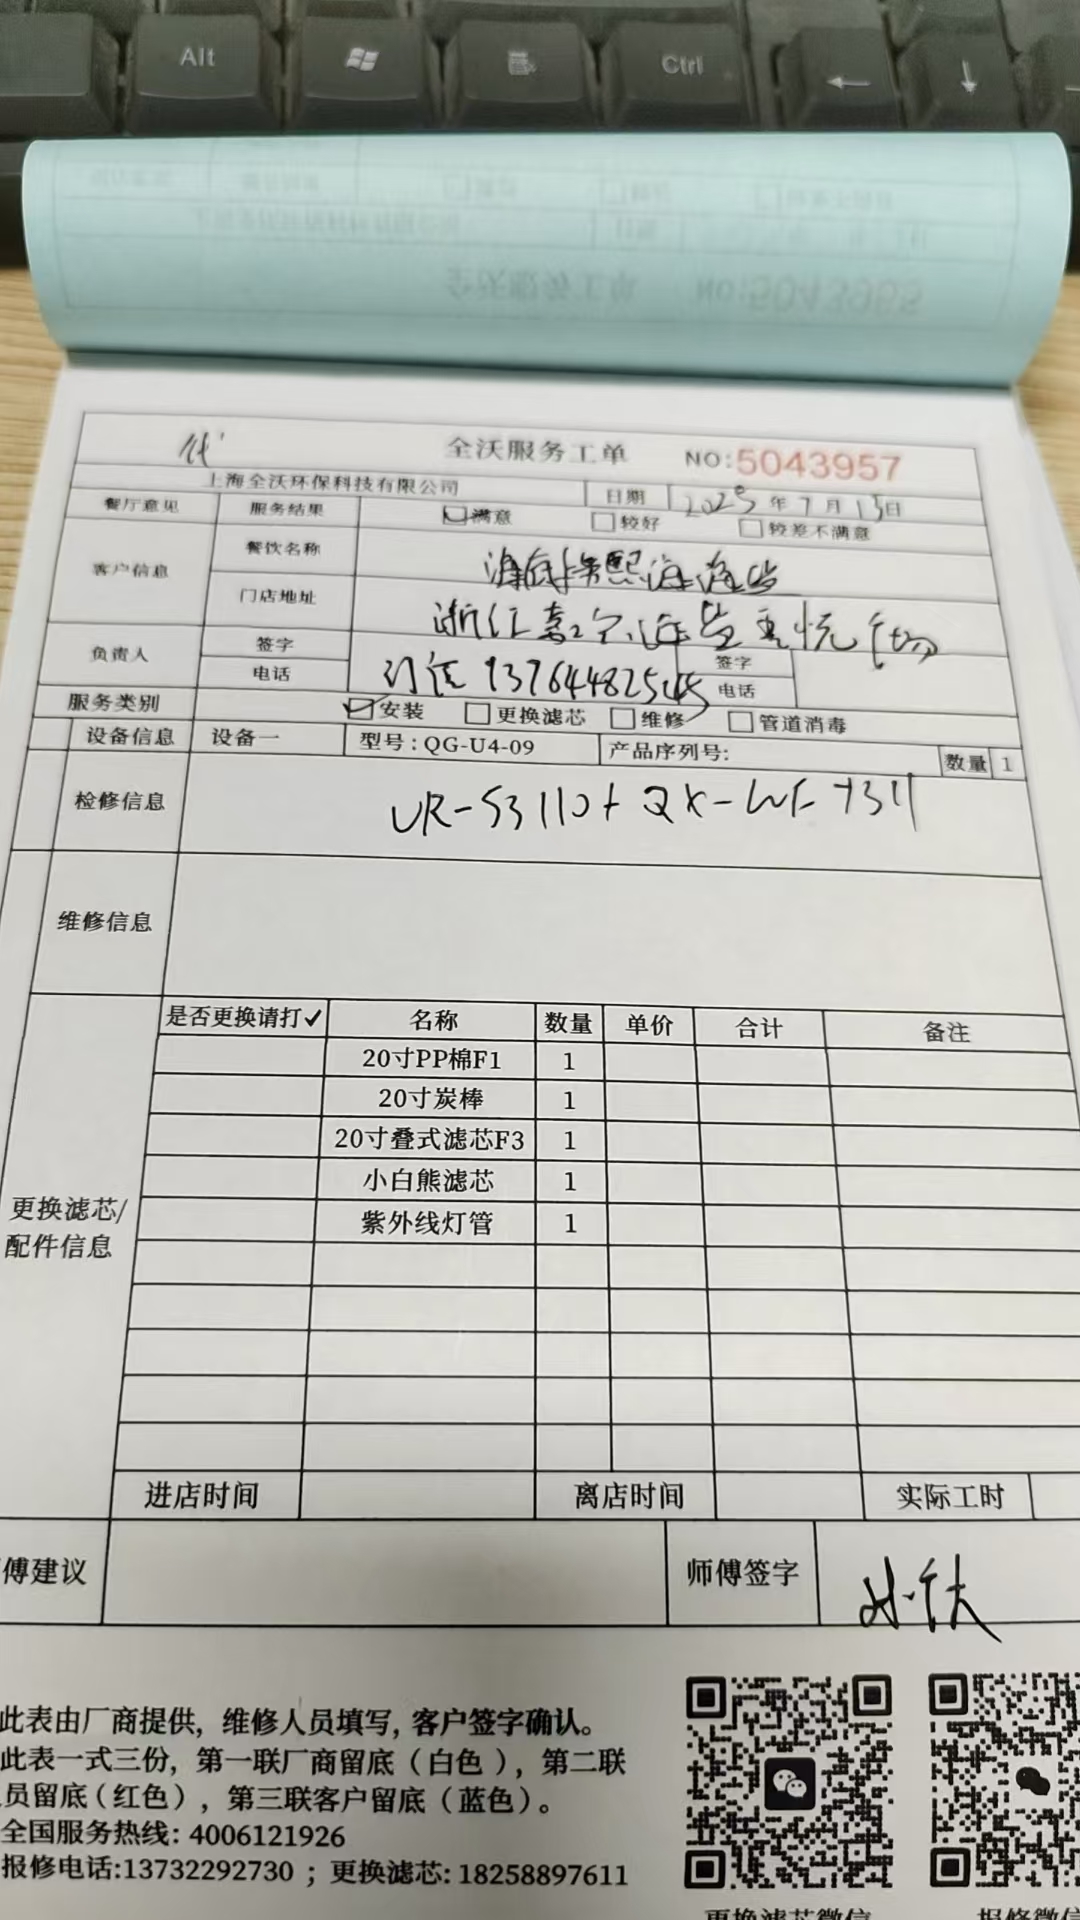 Alt
Ctrl
代
全沃服务工单 NO:5043957
上海全沃环保科技有限公司 日期 2025年7月15日
餐厅意见 服务结果 满意 较好 较差不满意
客户信息 餐饮名称
门店地址 浙江嘉兴海盐吾悦广场
负责人 签字 签字
电话 13764482545 电话
服务类别 安装 更换滤芯 维修 管道消毒
设备信息 设备一 型号:QG-U4-09 产品序列号: 数量 1
检修信息 UR-S3110+QX-WF-7311
维修信息
是否更换请打✓ 名称 数量 单价 合计 备注
20寸PP棉F1 1
20寸炭棒 1
20寸叠式滤芯F3 1
小白熊滤芯 1
紫外线灯管 1
更换滤芯/
配件信息
进店时间 离店时间 实际工时
傅建议 师傅签字
此表由厂商提供, 维修人员填写, 客户签字确认。
此表一式三份, 第一联厂商留底(白色), 第二联
员留底(红色), 第三联客户留底(蓝色)。
全国服务热线: 4006121926
报修电话:13732292730 ; 更换滤芯: 18258897611
更换滤芯微信 报修微信